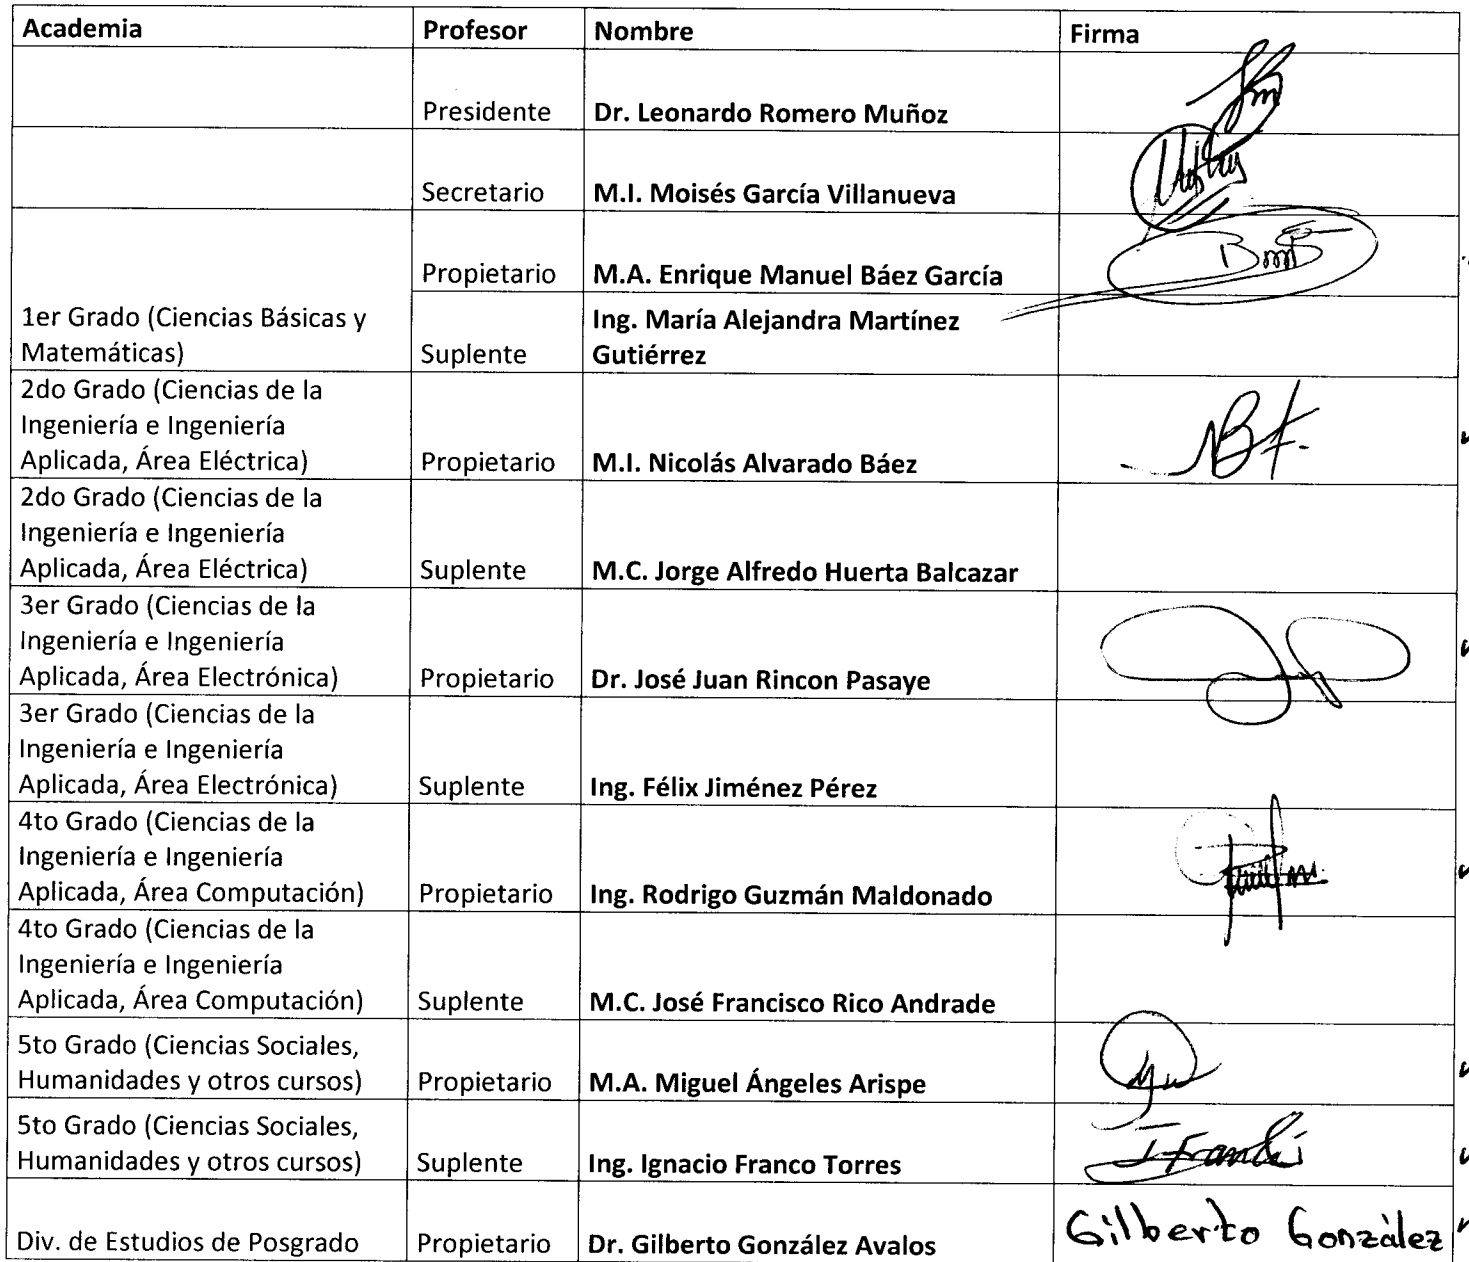 Academia Profesor Nombre Firma
Presidente Dr. Leonardo Romero Muñoz
Secretario M.I. Moisés García Villanueva
Propietario M.A. Enrique Manuel Báez García
1er Grado (Ciencias Básicas y
Matemáticas) Suplente Ing. María Alejandra Martínez
Gutiérrez
2do Grado (Ciencias de la
Ingeniería e Ingeniería
Aplicada, Área Eléctrica) Propietario M.I. Nicolás Alvarado Báez
2do Grado (Ciencias de la
Ingeniería e Ingeniería
Aplicada, Área Eléctrica) Suplente M.C. Jorge Alfredo Huerta Balcazar
3er Grado (Ciencias de la
Ingeniería e Ingeniería
Aplicada, Área Electrónica) Propietario Dr. José Juan Rincon Pasaye
3er Grado (Ciencias de la
Ingeniería e Ingeniería
Aplicada, Área Electrónica) Suplente Ing. Félix Jiménez Pérez
4to Grado (Ciencias de la
Ingeniería e Ingeniería
Aplicada, Área Computación) Propietario Ing. Rodrigo Guzmán Maldonado
4to Grado (Ciencias de la
Ingeniería e Ingeniería
Aplicada, Área Computación) Suplente M.C. José Francisco Rico Andrade
5to Grado (Ciencias Sociales,
Humanidades y otros cursos) Propietario M.A. Miguel Ángeles Arispe
5to Grado (Ciencias Sociales,
Humanidades y otros cursos) Suplente Ing. Ignacio Franco Torres
Div. de Estudios de Posgrado Propietario Dr. Gilberto González Avalos Gilberto González